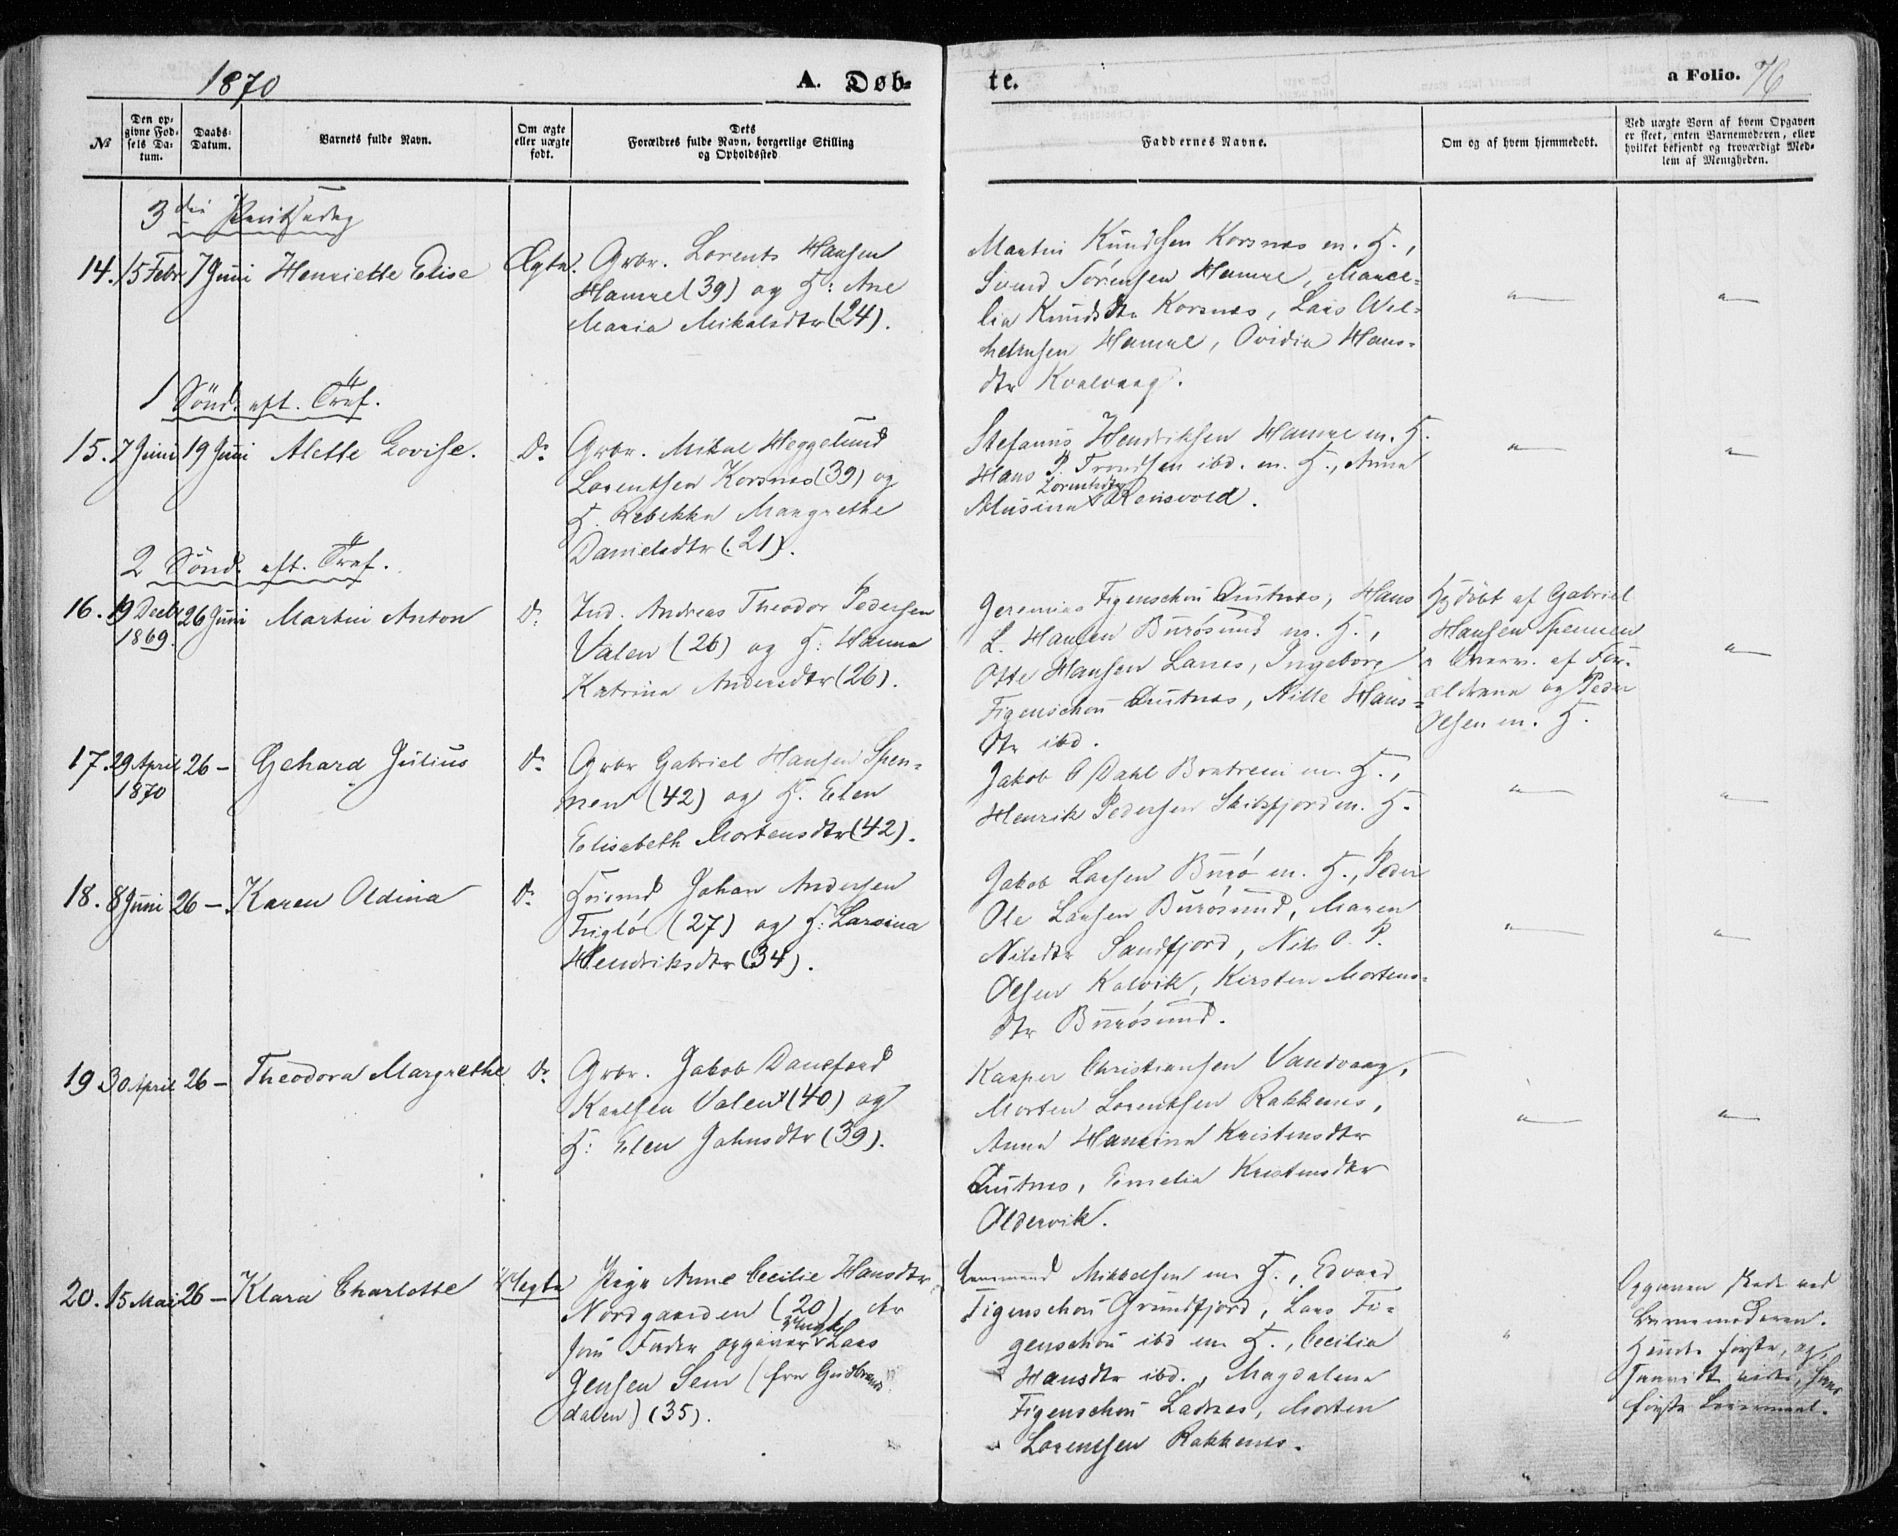 1870
A. Døb-
te.
a Folio. 76
№
Den op-
givne Fød-
sels Da-
tum.
Daabs-
Datum.
Barnets fulde Navn.
Om ægte
eller uægte
født.
Dets
Forældres fulde Navn, borgerlige Stilling
og Opholdssted
Faddernes Navne.
Om og af hvem hjemmedøbt.
Ved uægte Børn af hvem Opgaven
er skeet, enten Barnemoderen, eller
hvilket bekjendt og troværdigt Med-
lem af Menigheden.
3die Pintsedag
14. 15 Febr. 7 Juni Henriette Elise Ægte.
Grbr. Lorents Hansen
Hamre (39) og H: Ane
Maria Mikalsdtr (24).
Martin Knudsen Korsnes m. H.,
Svend Sørensen Hamre, Marce-
lia Knudsdtr Korsnes, Lars Wil-
helmsen Hamre, Ovidia Hans-
dtr Kvalvaag.
1 Sönd. eft. Tref.
15. 7 Juni 19 Juni Alette Lovise. Do
Grbr. Mikal Heggelund
Lorentsen Korsnes (39) og
H. Rebekka Margrethe
Danielsdtr (21).
Stefanus Hendriksen Hamre m. H.
Hans P. Trondsen ibd. m. H., Anna
Lorentsdtr
Alusina Reisvold.
2 Sönd. eft. Tref.
16. 19 Decbr 26 Juni Martin Anton Do
1869.
Ind. Andreas Theodor Pedersen
Valen (26) og H: Hanna
Katrina Andersdtr (26).
Jeremias Figenschou Qutnes, Hans
L. Hansen Burøsund m. H.,
Otte Hansen Lanes, Ingeborg
Figenschou Qutnes, Nille Hans-
dtr ibd.
Hjdöbt af Gabriel
Hansen Spennen
i Overv. af For-
ældrene og Peder
Olsen m. H.
17. 29 April 26 — Gehard Julius Do
1870
Grbr Gabriel Hansen Spen-
nen (42) og H. Elen
Elisabeth Mortensdtr (42).
Jakob C Dahl Bratrein m. H.,
Henrik Pedersen Skitsfjord m. H.
18. 8 Juni 26 — Karen Oldina Do
Huusmd Johan Andersen
Fuglø (27) og H: Larsina
Hendriksdtr (34).
Jakob Larsen Burø m. H., Peder
Ole Larsen Burøsund, Maren
Nilsdtr Sandfjord, Nils O. P.
Olsen Kalvik, Kirsten Mortens-
dtr Burøsund.
19 30 April 26 — Theodora Margrethe Do
Grbr. Jakob Danefærd
Karlsen Valen (40) og
H: Elen Johnsdtr (39).
Kasper Christiansen Vandvaag,
Morten Lorentsen Rakkenes,
Anna Hansina Kristensdtr
Qutnes, Emelia Kristensdtr
Oldervik.
20. 15 Mai 26 — Klara Charlotte Uægte
Pige Anne Cecilie Hansdtr
Nordgaarden (20),
som Fader opgives Lars
Jensen Sem (fra Gudbrands
dalen) (35).
Mikkelsen m. H., Edvard
Figenschou Grundfjord, Lars Fi-
genschou ibd m. H., Cecilia
Hansdtr ibd., Magdalena
Figenschou Ladnes, Morten
Lorentsen Rakkenes.
Opgaven skede ved
Barnemoderen.
Hendes første, og,
saavidt vides, hans
første Leiermaal.